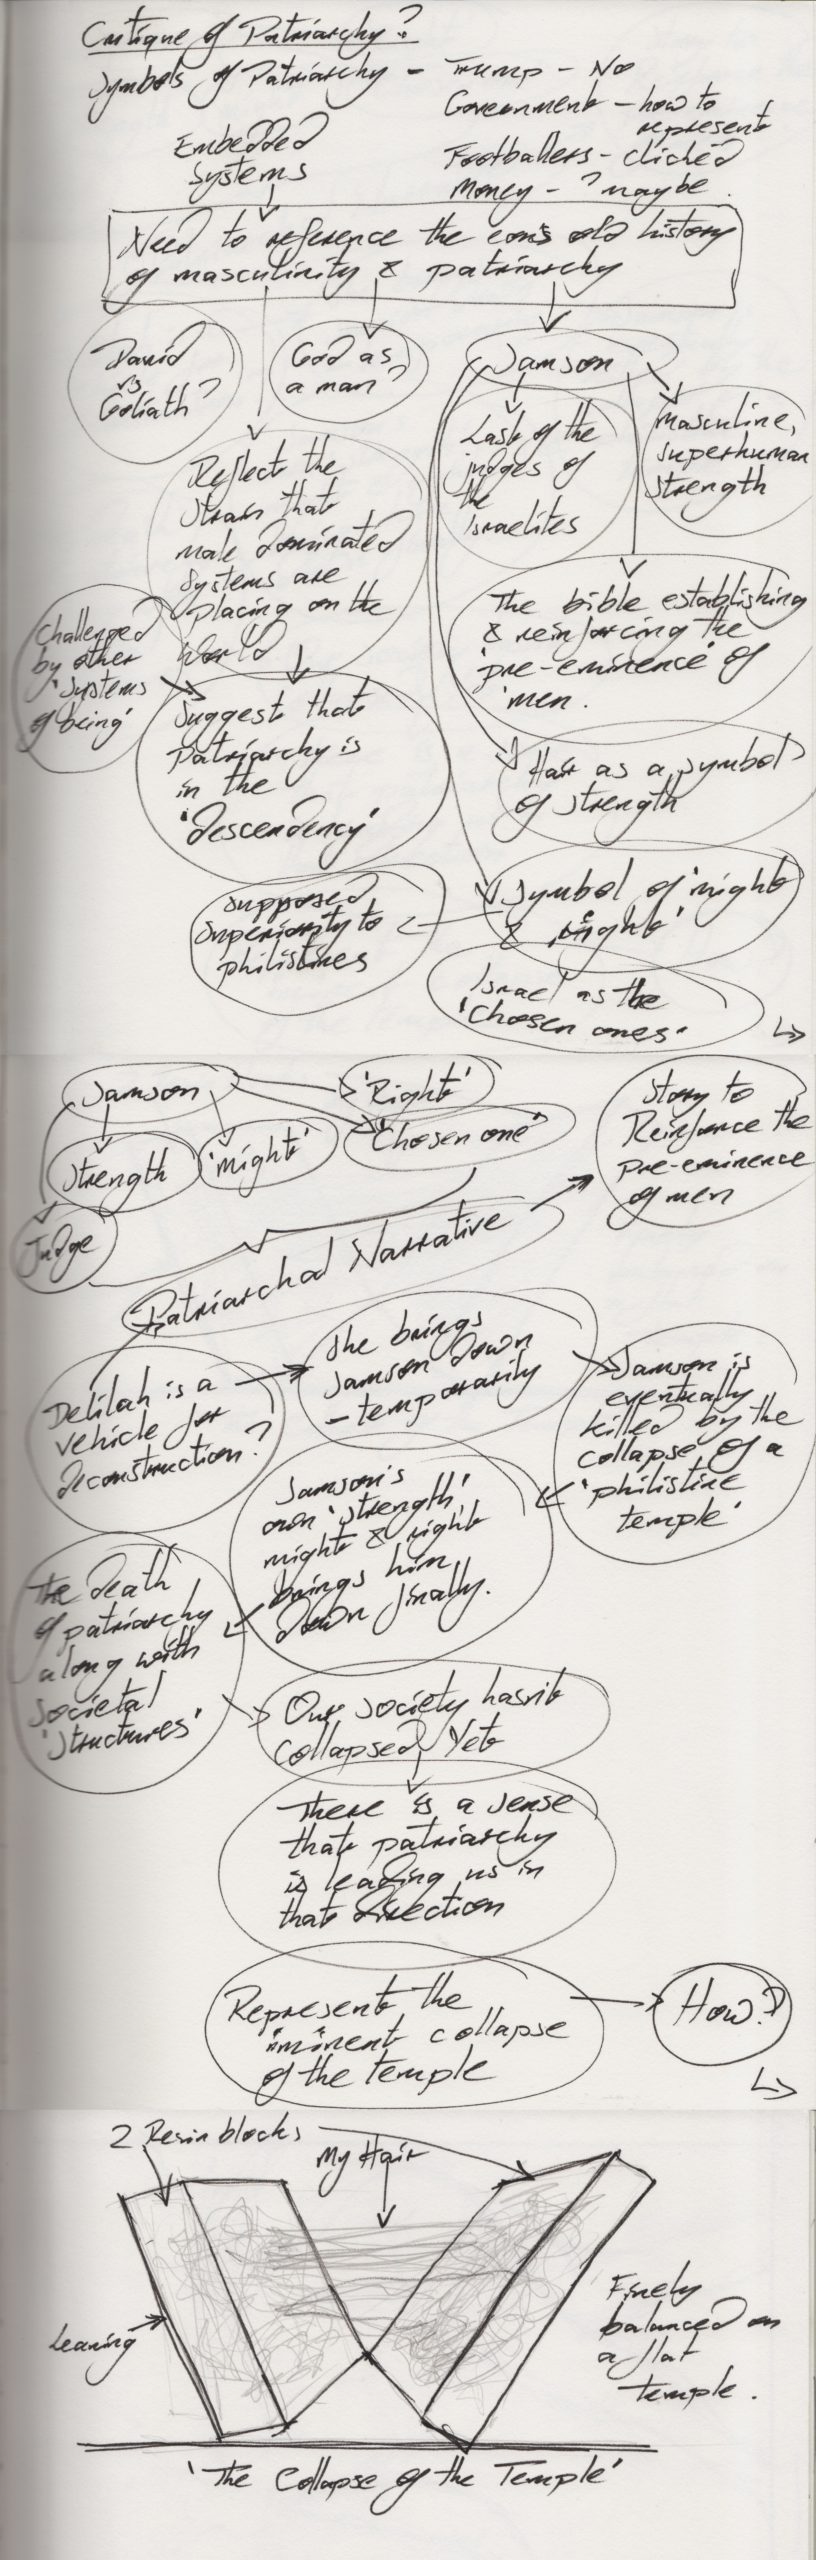 Critique of Patriarchy?
Symbols of Patriarchy - Trump - No
Government - how to
represent
Footballers - clichéd
Money - ? maybe.
Embedded
Systems
Need to reference the eons old history
of masculinity & patriarchy
David
vs
Goliath?
God as
a man?
Samson
Last of the
judges of
the
Israelites
masculine,
superhuman
strength
Reflect the
strain that
male dominated
systems are
placing on the
world
The bible establishing
& reinforcing the
'pre-eminence' of
'men.
challenged
by other
'systems
of being'
Suggest that
patriarchy is
in the
'descendency'
Hair as a symbol
of strength
Symbol of 'might
& right'
supposed
superiority to
philistines
Israel as the
'chosen ones'
Samson
'Right'
'Chosen one'
Strength
'might'
Judge
Story to
Reinforce the
pre-eminence
of men
Patriarchal Narrative
Delilah is a
vehicle for
deconstruction?
She brings
Samson down
- temporarity
Samson is
eventually
killed by the
collapse of a
'philistine
temple'
Samson's
own 'strength',
might & right
brings him
down finally.
The death
of patriarchy
along with
societal
'structures'
Our society hasn't
collapsed, Yet
There is a sense
that patriarchy
is leading us in
that direction
Represent the
iminent collapse
of the temple
How?
2 Resin blocks
My Hair
Leaning
Finely
balanced on
a flat
temple.
'The Collapse of the Temple'